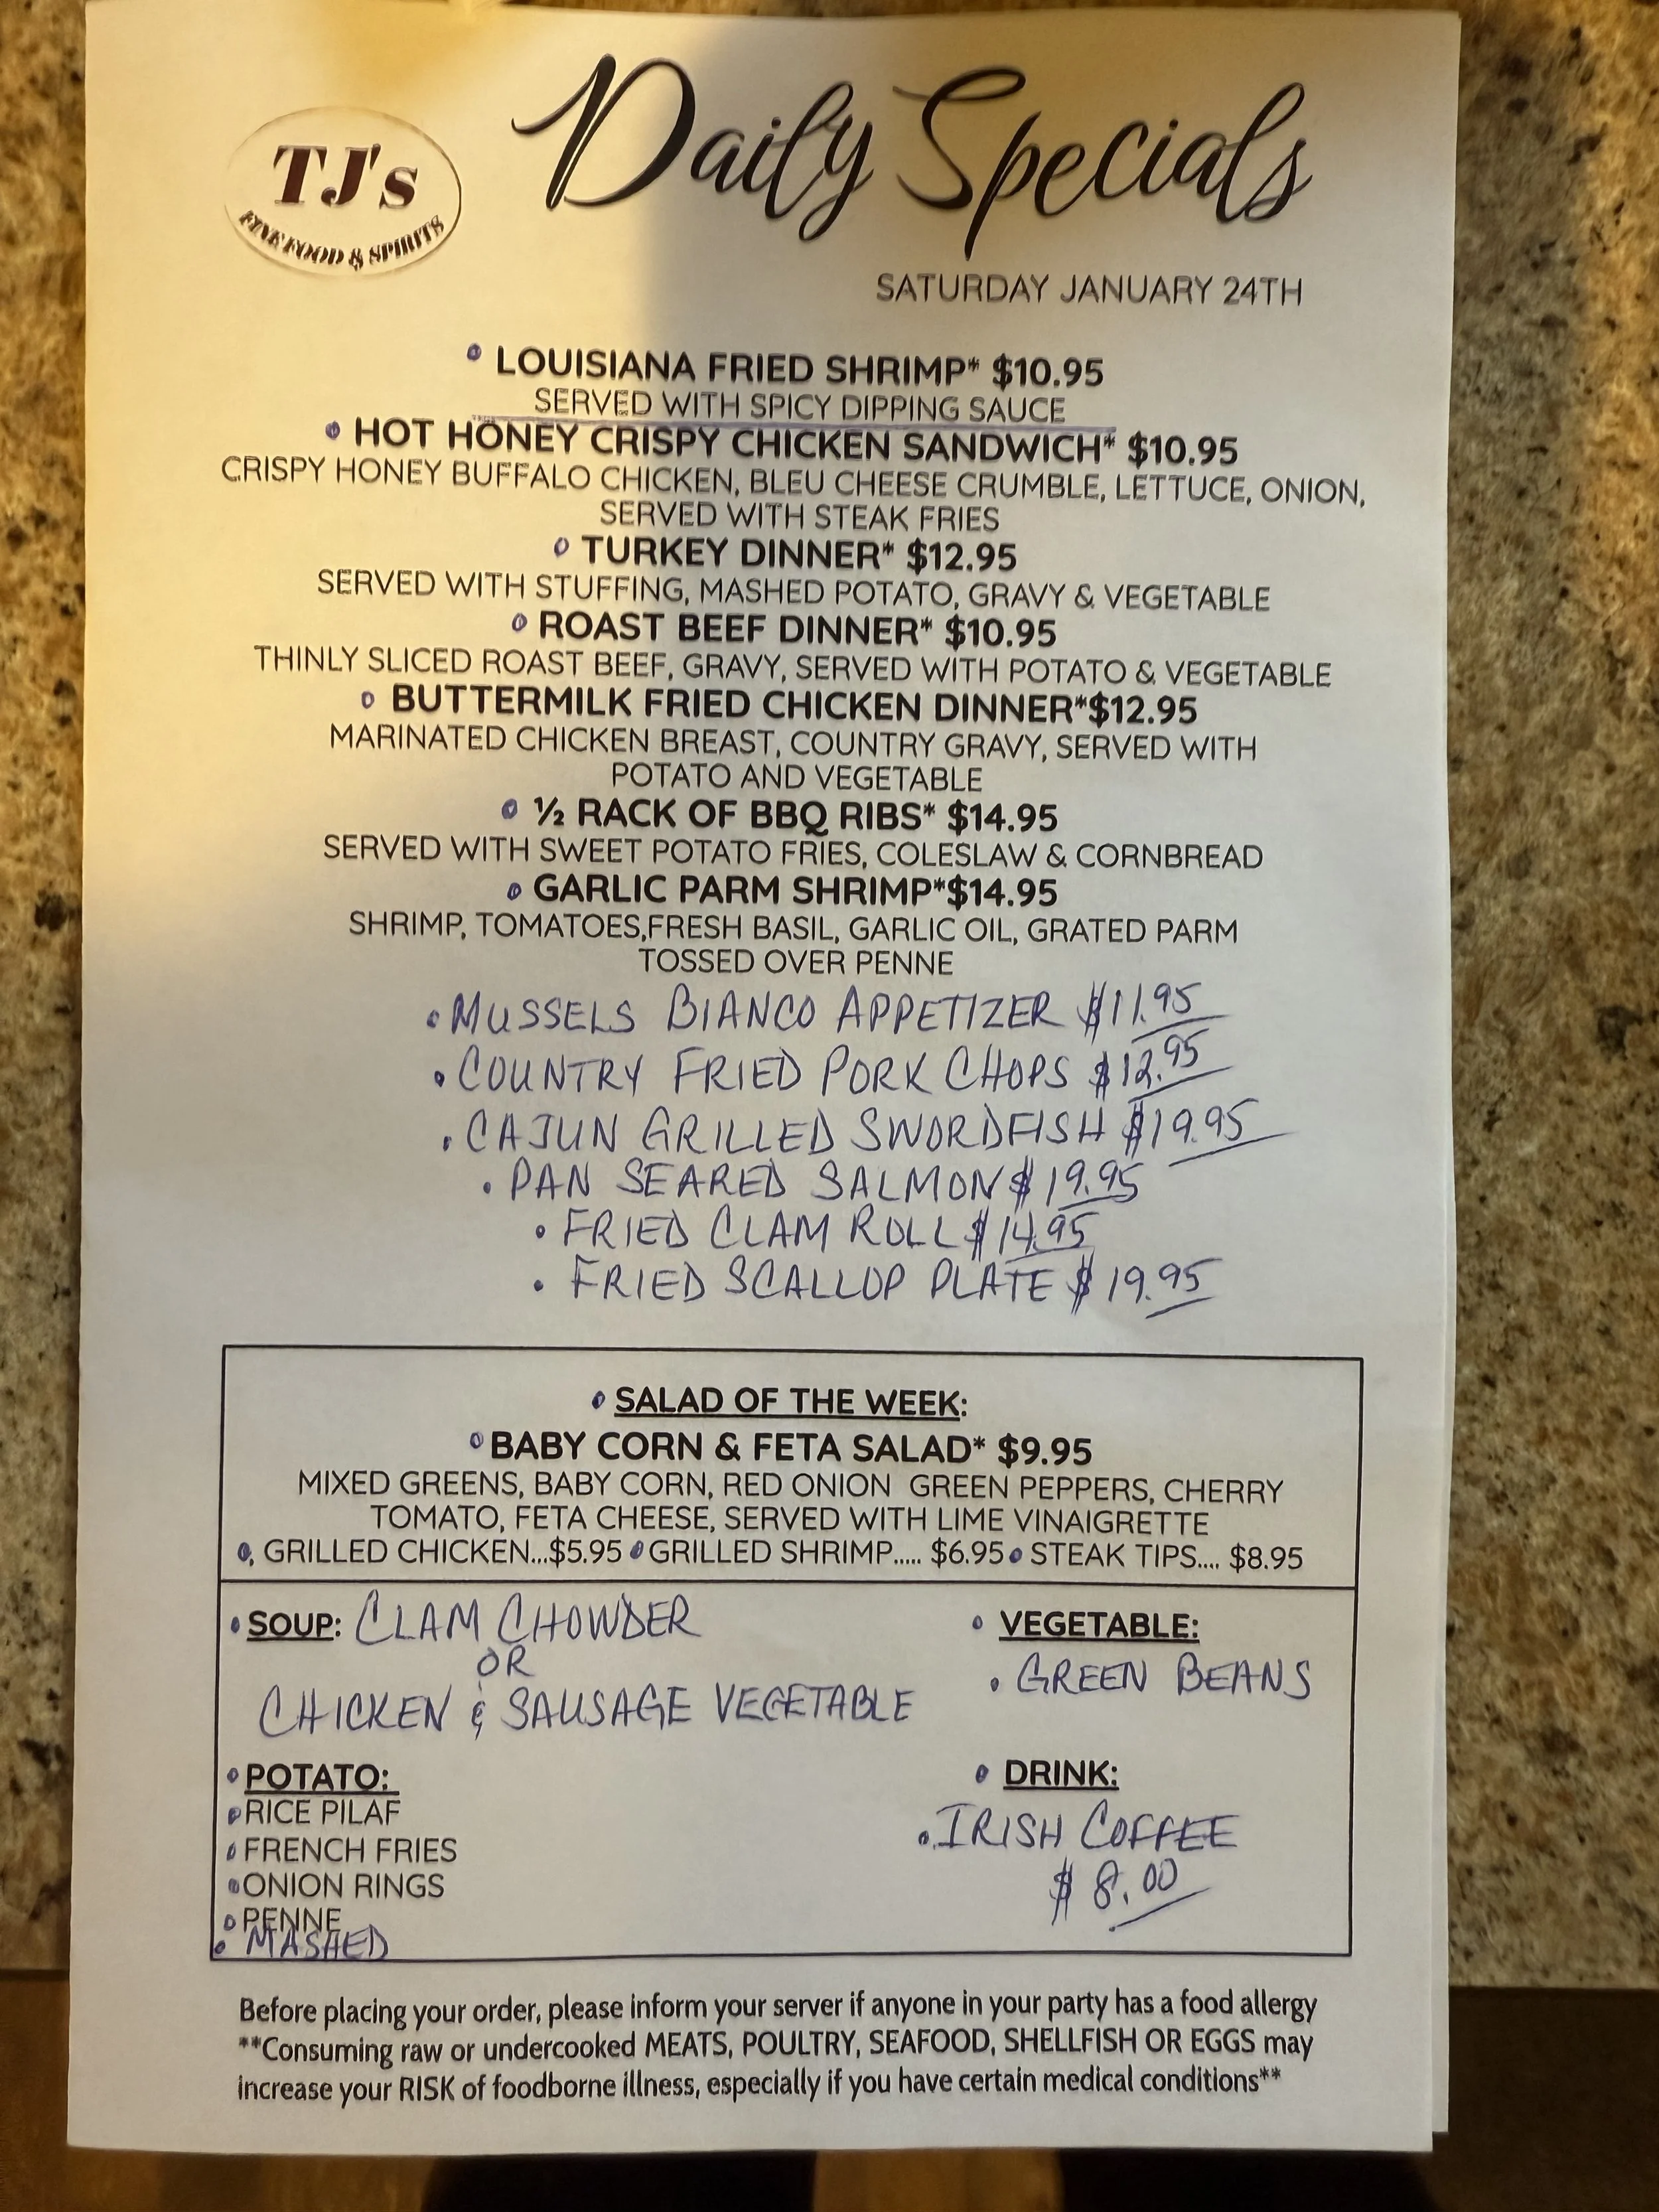 TJ's
FINE FOOD & SPIRITS
Daily Specials
SATURDAY JANUARY 24TH
LOUISIANA FRIED SHRIMP* $10.95
SERVED WITH SPICY DIPPING SAUCE
HOT HONEY CRISPY CHICKEN SANDWICH* $10.95
CRISPY HONEY BUFFALO CHICKEN, BLEU CHEESE CRUMBLE, LETTUCE, ONION,
SERVED WITH STEAK FRIES
TURKEY DINNER* $12.95
SERVED WITH STUFFING, MASHED POTATO, GRAVY & VEGETABLE
ROAST BEEF DINNER* $10.95
THINLY SLICED ROAST BEEF, GRAVY, SERVED WITH POTATO & VEGETABLE
BUTTERMILK FRIED CHICKEN DINNER*$12.95
MARINATED CHICKEN BREAST, COUNTRY GRAVY, SERVED WITH
POTATO AND VEGETABLE
½ RACK OF BBQ RIBS* $14.95
SERVED WITH SWEET POTATO FRIES, COLESLAW & CORNBREAD
GARLIC PARM SHRIMP*$14.95
SHRIMP, TOMATOES,FRESH BASIL, GARLIC OIL, GRATED PARM
TOSSED OVER PENNE
• MUSSELS BIANCO APPETIZER $11.95
• COUNTRY FRIED PORK CHOPS $12.95
• CAJUN GRILLED SWORDFISH $19.95
• PAN SEARED SALMON $19.95
• FRIED CLAM ROLL $14.95
• FRIED SCALLOP PLATE $19.95
SALAD OF THE WEEK:
BABY CORN & FETA SALAD* $9.95
MIXED GREENS, BABY CORN, RED ONION GREEN PEPPERS, CHERRY
TOMATO, FETA CHEESE, SERVED WITH LIME VINAIGRETTE
GRILLED CHICKEN...$5.95 GRILLED SHRIMP..... $6.95 STEAK TIPS.... $8.95
SOUP: CLAM CHOWDER
OR
CHICKEN & SAUSAGE VEGETABLE
VEGETABLE:
• GREEN BEANS
POTATO:
RICE PILAF
FRENCH FRIES
ONION RINGS
PENNE
• MASHED
DRINK:
• IRISH COFFEE
$8.00
Before placing your order, please inform your server if anyone in your party has a food allergy
**Consuming raw or undercooked MEATS, POULTRY, SEAFOOD, SHELLFISH OR EGGS may
increase your RISK of foodborne illness, especially if you have certain medical conditions**